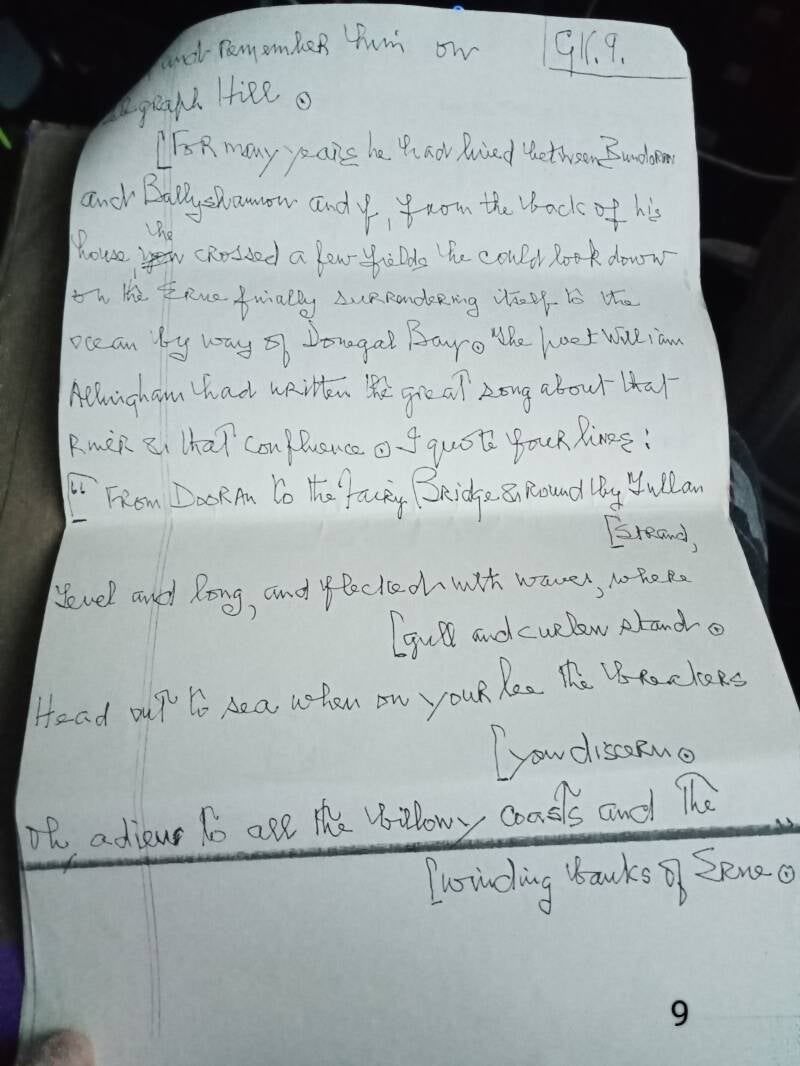 and remember him on
GK.9.
graph Hill.
[For many years he had lived between Bundoran
and Ballyshannon and if, from the back of his
the
house, crossed a few fields he could look down
on the Erne finally surrendering itself to the
ocean by way of Donegal Bay. The poet William
Allingham had written the great song about that
River & that confluence. I quote four lines:
[" From Dooran to the Fairy Bridge & round by Tullan
[Strand,
Level and long, and flecked with waves, where
[gull and curlew stand.
Head out to sea when on your lee the breakers
[you discern.
Oh, adieu to all the billowy coasts and the
[winding banks of Erne."
9